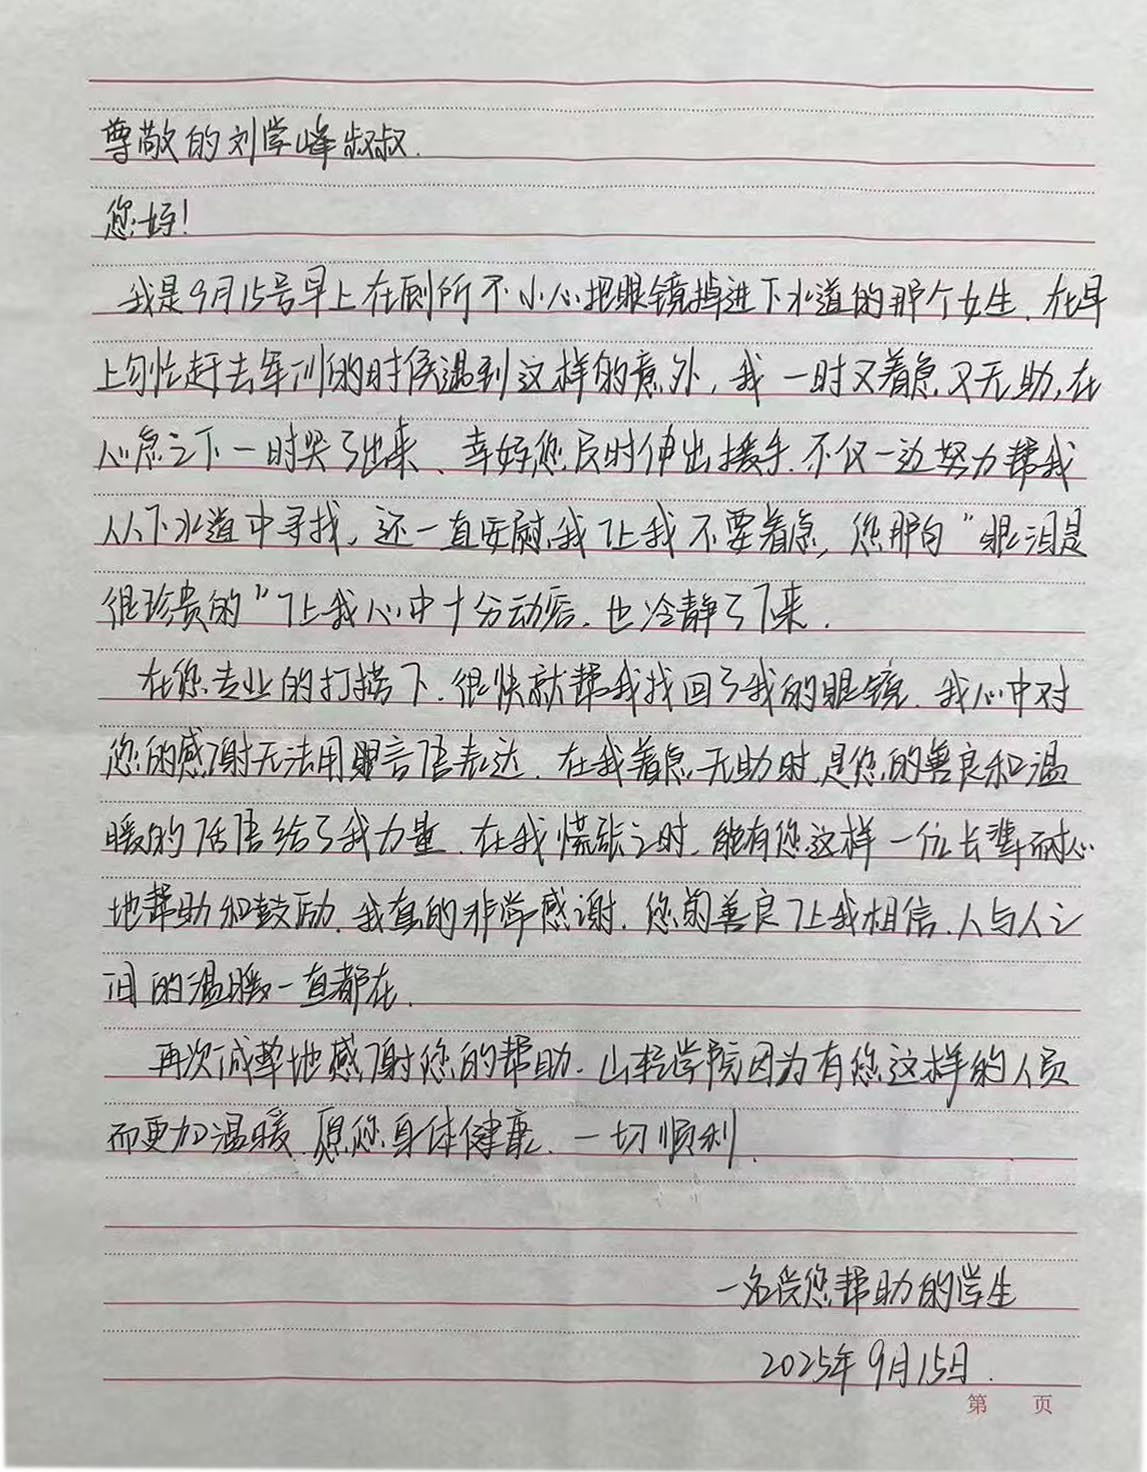 尊敬的刘学峰叔叔.
您好!
我是9月15号早上在厕所不小心把眼镜掉进下水道的那个女生.在早
上匆忙赶去军训的时候遇到这样的意外,我一时又着急又无助,在
心急之下一时哭了出来、幸好您及时伸出援手.不仅一边努力帮我
从下水道中寻找,还一直安慰我让我不要着急,您那句“眼泪是
很珍贵的”让我心中十分动容.也冷静了下来.
在您专业的打捞下.很快就帮我找回了我的眼镜.我心中对
您的感谢无法用言语表达.在我着急无助时,是您的善良和温
暖的话语给了我力量.在我慌张之时.能有您这样一位长辈耐心
地帮助和鼓励.我真的非常感谢.您的善良让我相信.人与人之
间的温暖一直都在.
再次诚挚地感谢您的帮助.山轻学院因为有您这样的人员
而更加温暖.愿您身体健康、一切顺利.
一名受您帮助的学生
2025年9月15日.
第 页